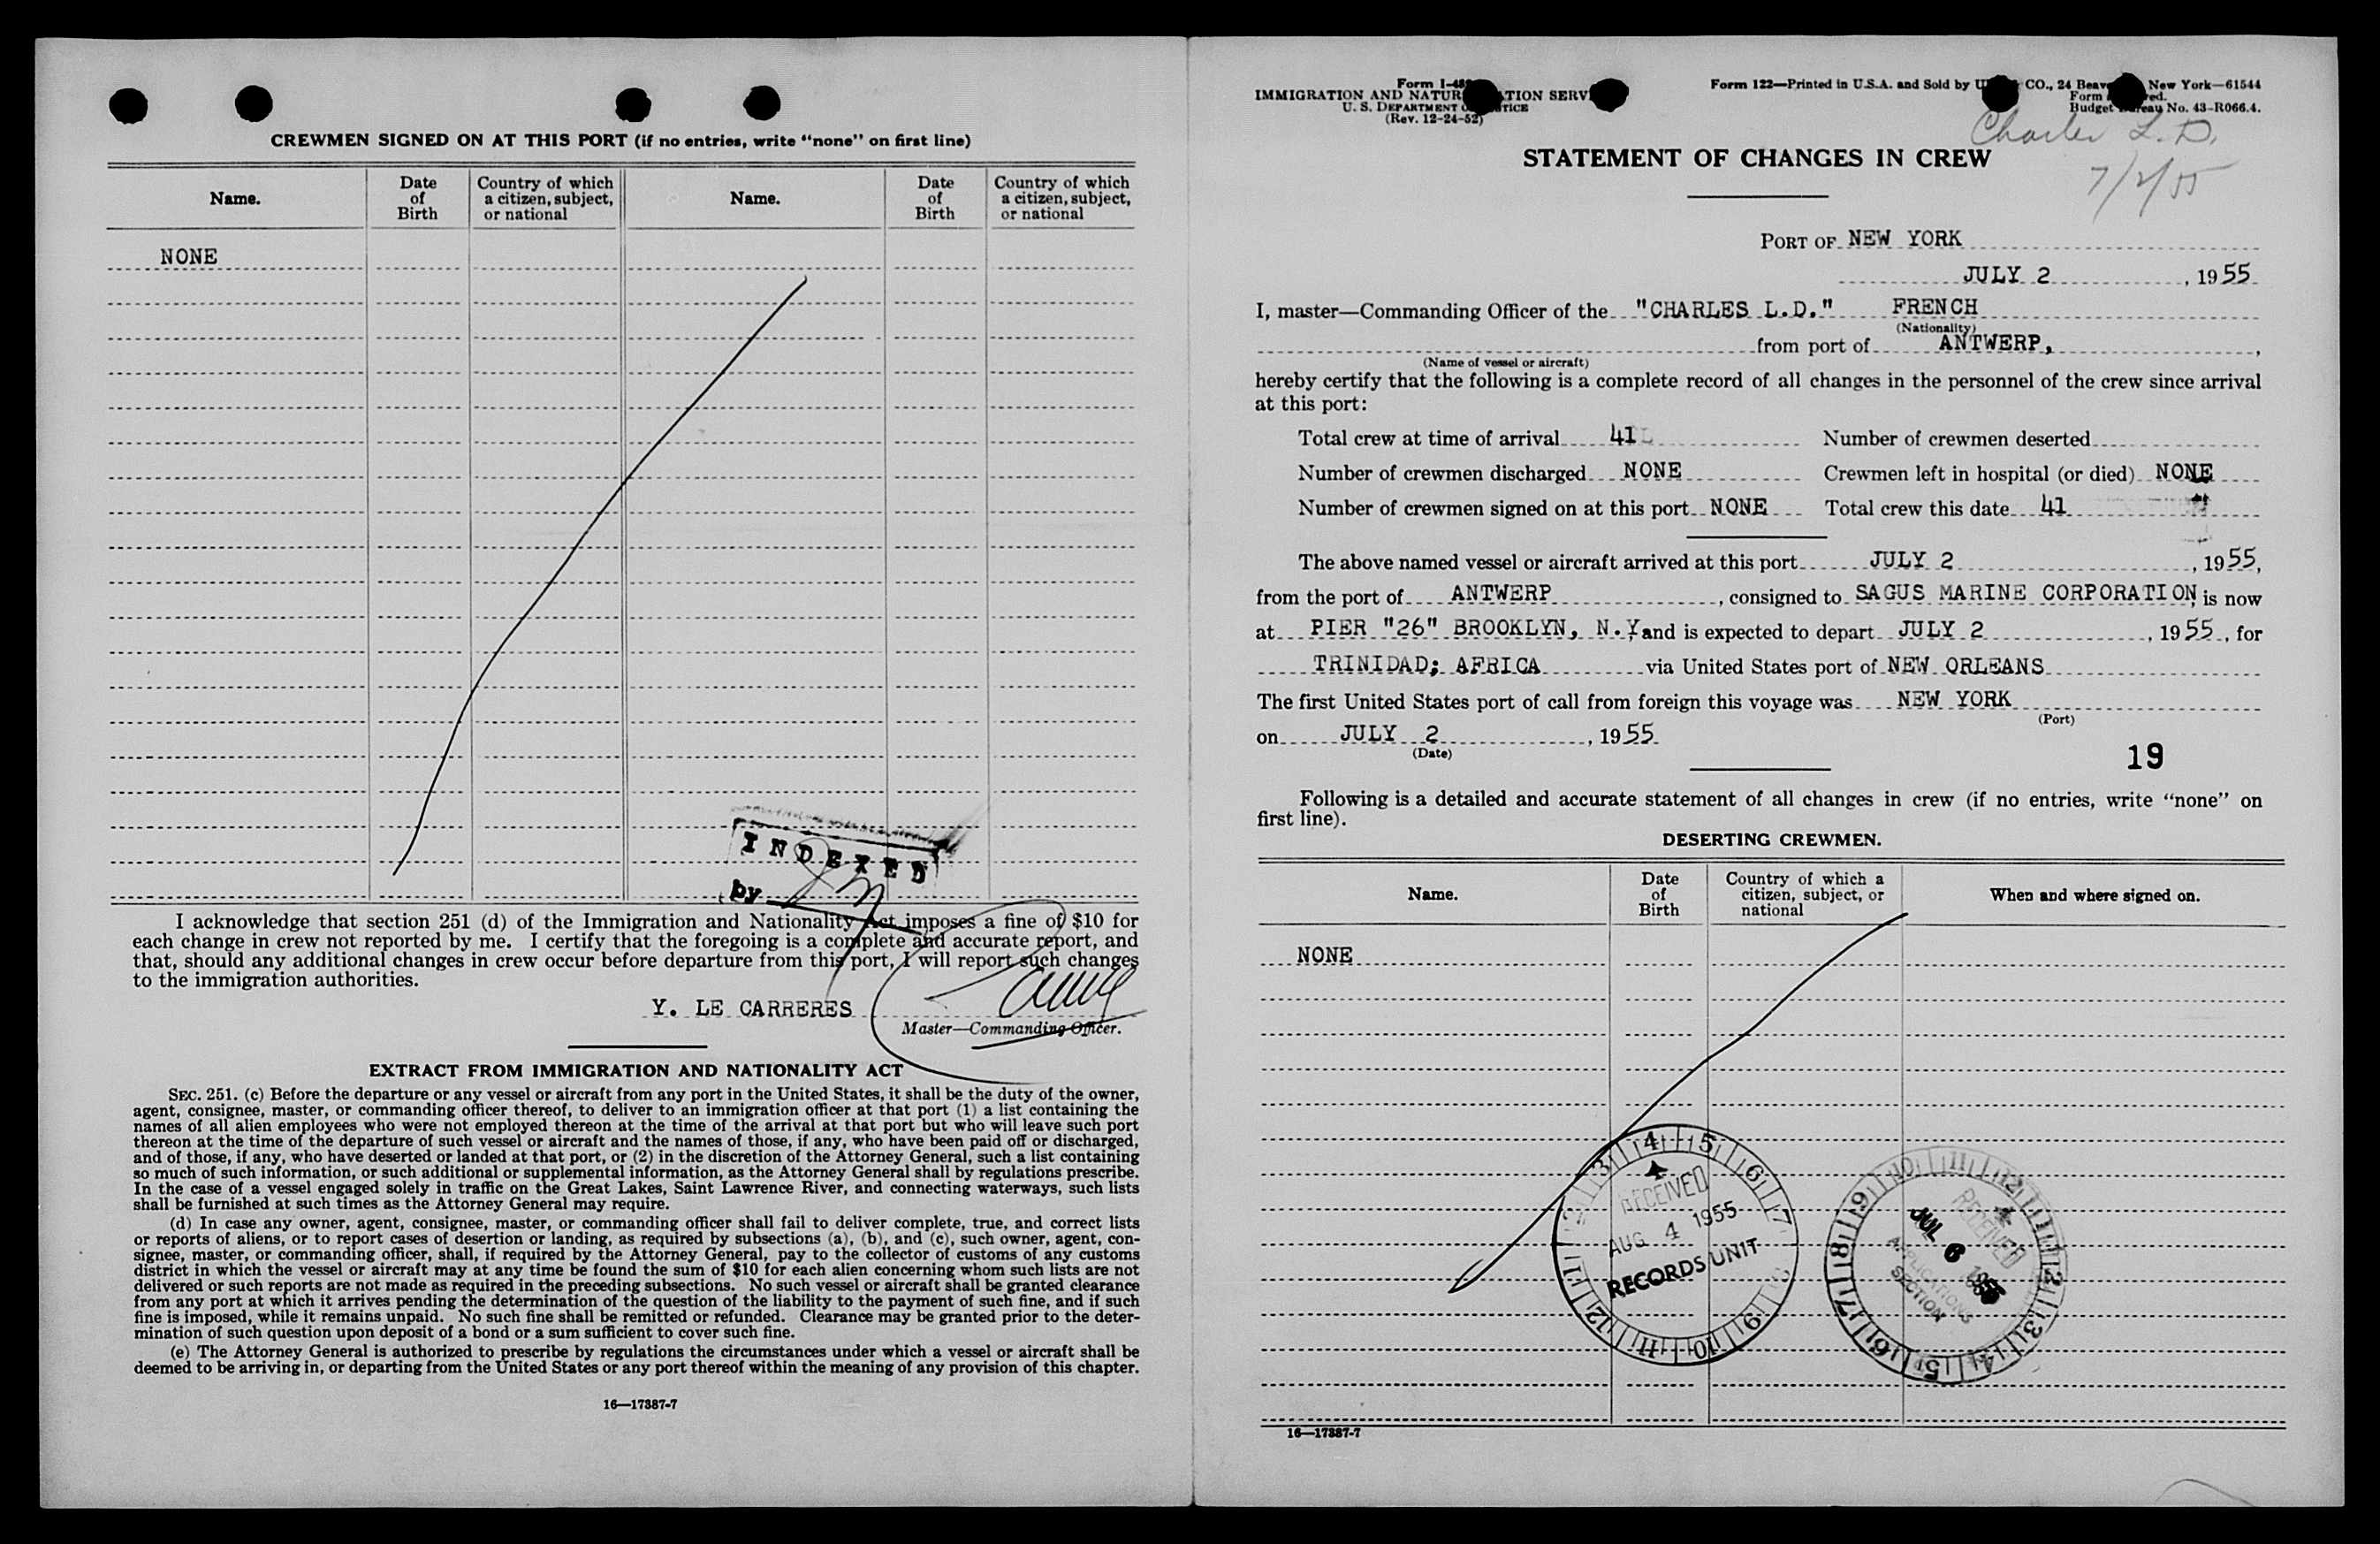 CREWMEN SIGNED ON AT THIS PORT (if no entries, write “none” on first line)
Name. Date of Birth Country of which a citizen, subject, or national Name. Date of Birth Country of which a citizen, subject, or national
NONE
INDEXED
by
I acknowledge that section 251 (d) of the Immigration and Nationality Act imposes a fine of $10 for
each change in crew not reported by me. I certify that the foregoing is a complete and accurate report, and
that, should any additional changes in crew occur before departure from this port, I will report such changes
to the immigration authorities.
Y. LE CARRERES
Master—Commanding Officer.
EXTRACT FROM IMMIGRATION AND NATIONALITY ACT
SEC. 251. (c) Before the departure or any vessel or aircraft from any port in the United States, it shall be the duty of the owner,
agent, consignee, master, or commanding officer thereof, to deliver to an immigration officer at that port (1) a list containing the
names of all alien employees who were not employed thereon at the time of the arrival at that port but who will leave such port
thereon at the time of the departure of such vessel or aircraft and the names of those, if any, who have been paid off or discharged,
and of those, if any, who have deserted or landed at that port, or (2) in the discretion of the Attorney General, such a list containing
so much of such information, or such additional or supplemental information, as the Attorney General shall by regulations prescribe.
In the case of a vessel engaged solely in traffic on the Great Lakes, Saint Lawrence River, and connecting waterways, such lists
shall be furnished at such times as the Attorney General may require.
(d) In case any owner, agent, consignee, master, or commanding officer shall fail to deliver complete, true, and correct lists
or reports of aliens, or to report cases of desertion or landing, as required by subsections (a), (b), and (c), such owner, agent, con-
signee, master, or commanding officer, shall, if required by the Attorney General, pay to the collector of customs of any customs
district in which the vessel or aircraft may at any time be found the sum of $10 for each alien concerning whom such lists are not
delivered or such reports are not made as required in the preceding subsections. No such vessel or aircraft shall be granted clearance
from any port at which it arrives pending the determination of the question of the liability to the payment of such fine, and if such
fine is imposed, while it remains unpaid. No such fine shall be remitted or refunded. Clearance may be granted prior to the deter-
mination of such question upon deposit of a bond or a sum sufficient to cover such fine.
(e) The Attorney General is authorized to prescribe by regulations the circumstances under which a vessel or aircraft shall be
deemed to be arriving in, or departing from the United States or any port thereof within the meaning of any provision of this chapter.
16—17387-7
Form I-48
IMMIGRATION AND NATUR TION SERV
U. S. DEPARTMENT O TICE
(Rev. 12-24-52)
Form 122—Printed in U.S.A. and Sold by U CO., 24 Beav New York—61544
Form ed.
Budget eau No. 43-R066.4.
Charles L. D.
7/2/55
STATEMENT OF CHANGES IN CREW
PORT OF NEW YORK
JULY 2, 1955
I, master—Commanding Officer of the "CHARLES L.D." FRENCH
(Nationality)
from port of ANTWERP,
(Name of vessel or aircraft)
hereby certify that the following is a complete record of all changes in the personnel of the crew since arrival
at this port:
Total crew at time of arrival 41 Number of crewmen deserted
Number of crewmen discharged NONE Crewmen left in hospital (or died) NONE
Number of crewmen signed on at this port NONE Total crew this date 41
The above named vessel or aircraft arrived at this port JULY 2, 1955,
from the port of ANTWERP, consigned to SAGUS MARINE CORPORATION, is now
at PIER "26" BROOKLYN, N.Y. and is expected to depart JULY 2, 1955, for
TRINIDAD; AFRICA via United States port of NEW ORLEANS
The first United States port of call from foreign this voyage was NEW YORK
(Port)
on JULY 2, 1955
(Date)
19
Following is a detailed and accurate statement of all changes in crew (if no entries, write “none” on
first line).
DESERTING CREWMEN.
Name. Date of Birth Country of which a citizen, subject, or national When and where signed on.
NONE
RECEIVED
AUG 4 1955
RECORDS UNIT
RECEIVED
JUL 6 1955
APPLICATIONS
SECTION
16—17387-7